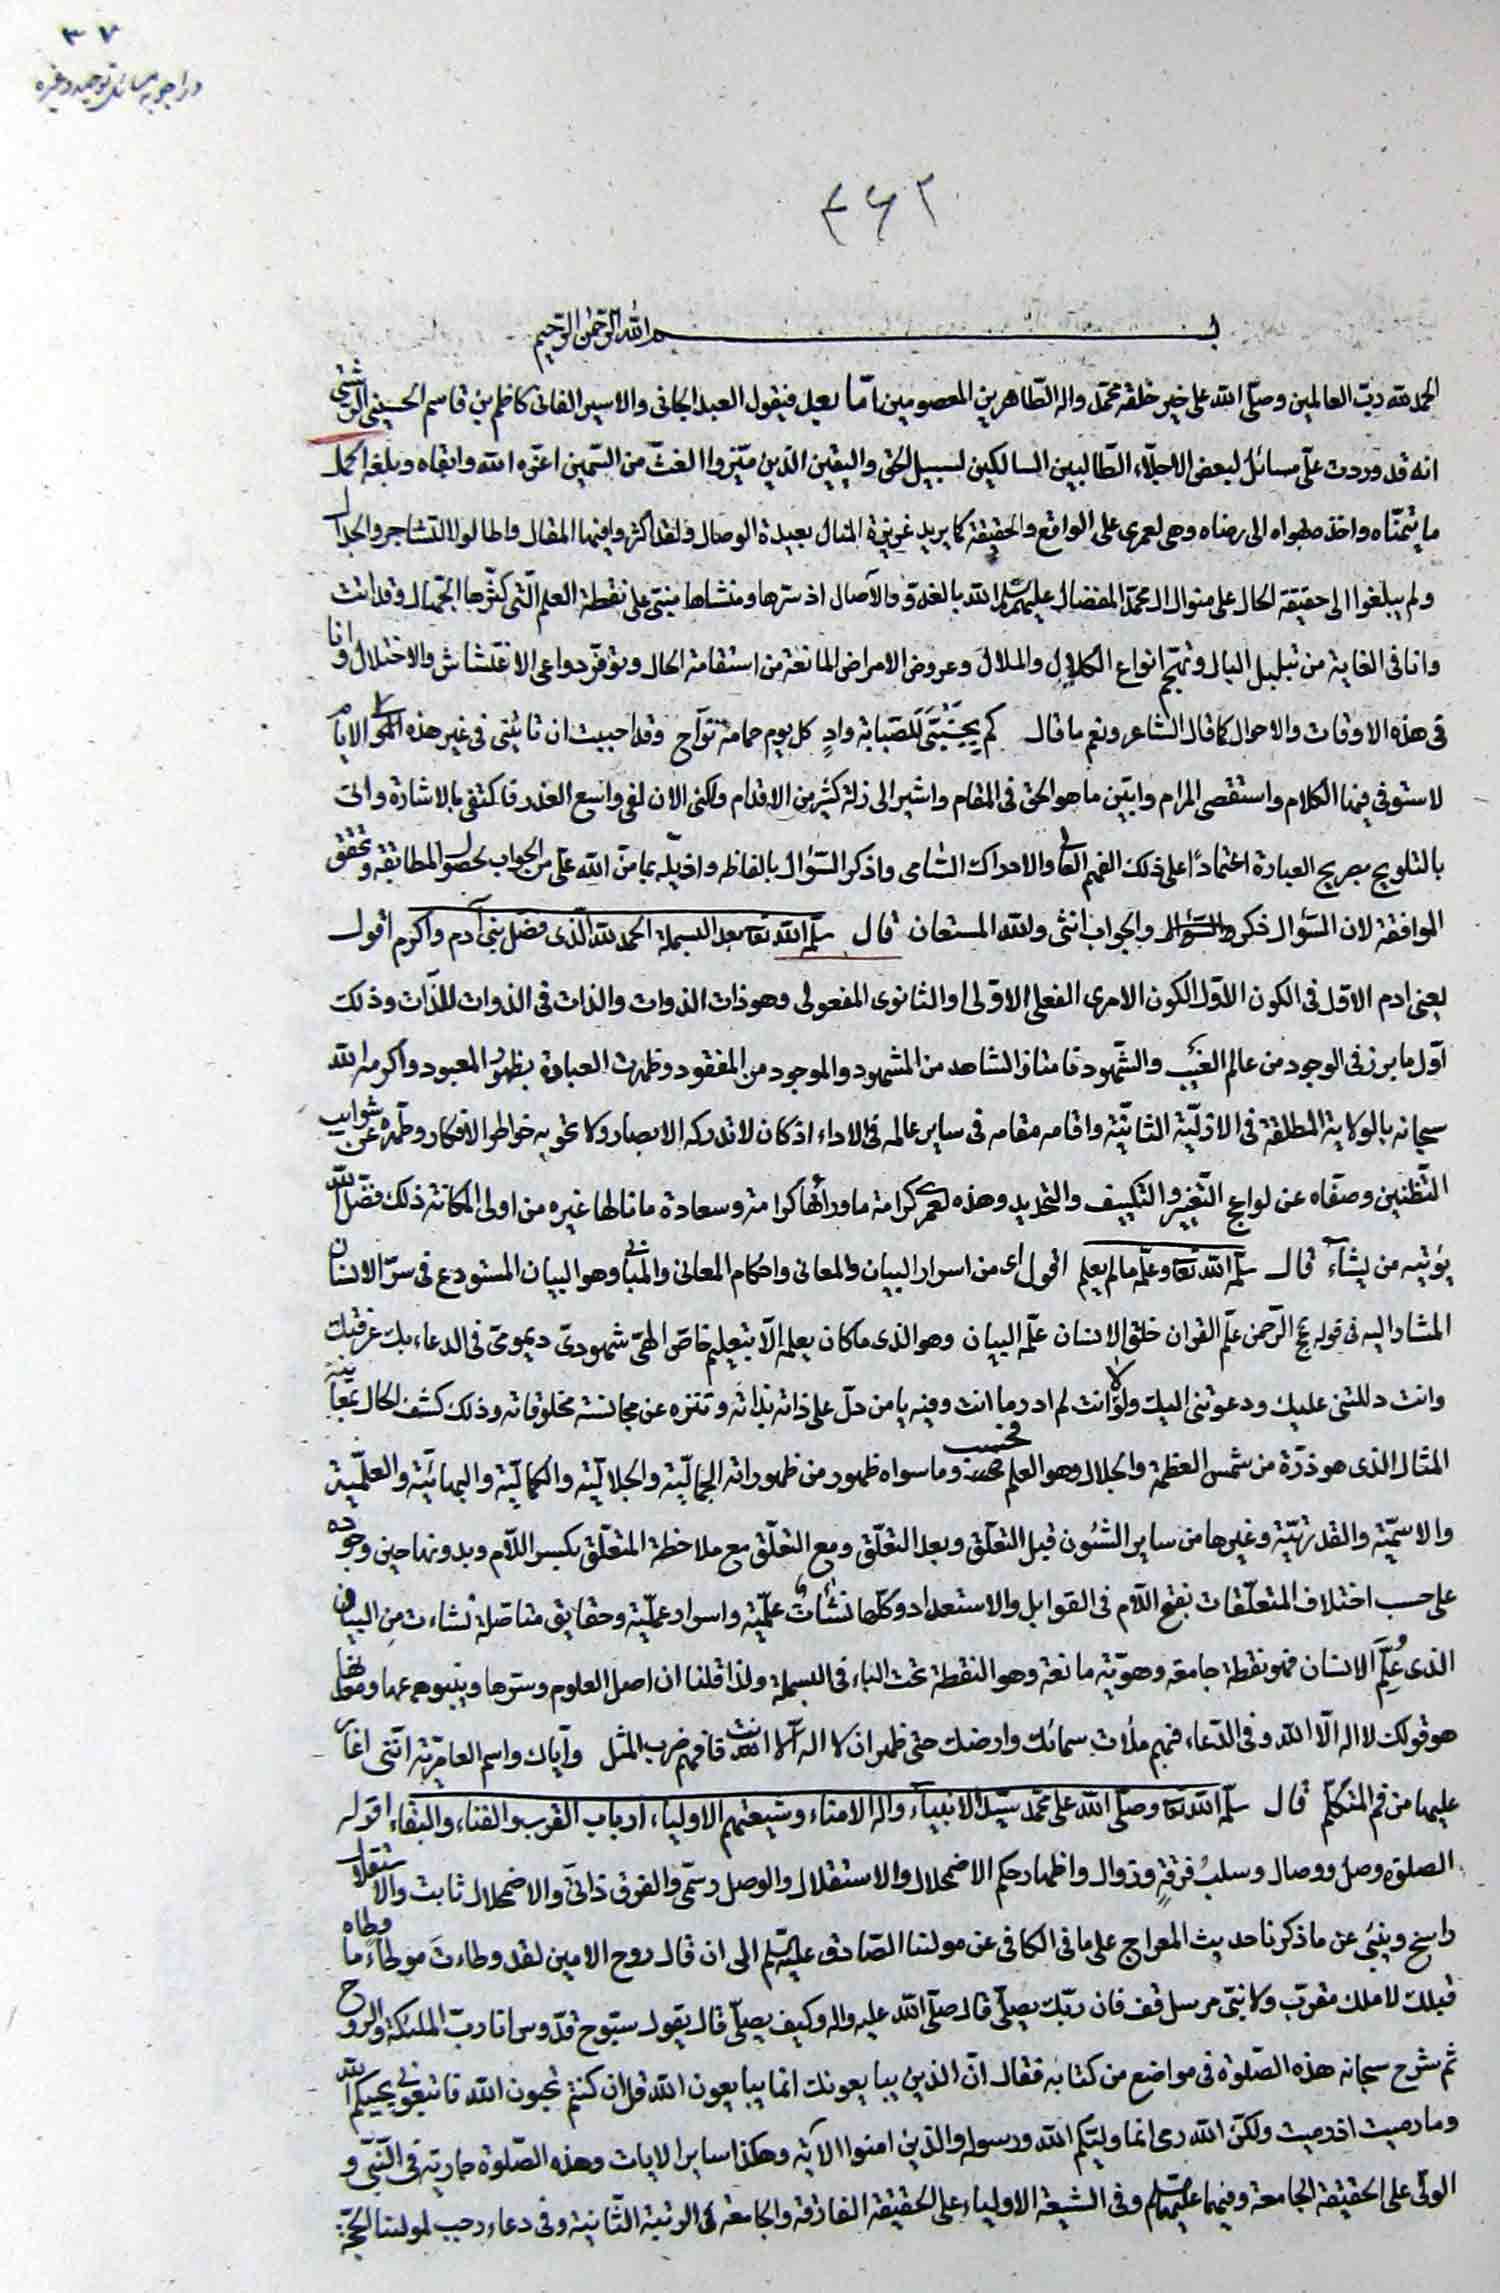 ٣٧
در اجوبه مسائل توحيد و غيره
٣٦٢
بسم الله الرحمن الرحيم
الحمد لله رب العالمين وصلى الله على خير خلقه محمد واله الطاهرين المعصومين اما بعد فيقول العبد الجانى والاسير الفانى كاظم بن قاسم الحسينى الرشتى
انه قد وردت على مسائل لبعض الاجلاء الطالبين السالكين لسبيل الحق واليقين الذين ميزوا الغث من السمين اعزه الله وابقاه وبلغه اكمل
ما يتمناه واخذ بهواه الى رضاه وهى لعمرى على الواقع والحقيقة كما يريد عزيزة المنال بعيدة الوصال ولقد اكثروا فيها المقال واطالوا التشاجر والجدال
ولم يبلغوا الى حقيقة الحال على منوال ال محمد المفضال عليهم سلم الله بالغدو والآصال اذ سترها ومنشاها مبنى على نقطة العلم التى كثرها الجهال وقد اتت
وانا فى الغاية من تبلبل البال وتهجم انواع الكلال والملال وعروض الامراض المانعة من استقامة الحال وتوفر دواعى الاغتشاش والاختلال وانا
فى هذه الاوقات والاحوال كما قال الشاعر ونعم ما قال كم يجنبنى للصبابة واد كل يوم حمامة نواح وقد احببت ان تاتينى فى غير هذه الايام
لاستوفى فيها الكلام واستقصى المرام وابين ما هو الحق فى المقام واشير الى زلة كثير من الاقدام ولكنى الان لفى واسع العذر فاكتفى بالاشارة واتى
بالتلويح بصريح العبارة اعتمادا على ذلك الفهم العالى والادراك السامى واذكر السؤال بالفاظه واذيله بما من الله على من الجواب لحصول المطابقة وتحقق
الموافقة لان السؤال ذكر والجواب انثى والله المستعان قال سلمه الله تعالى بعد البسملة الحمد لله الذى فضل بنى آدم واكرم اقول
يعنى ادم الاول فى الكون الاول الكون الامرى الفعلى الاولى او الثانوى المفعولى وهو ذات الذوات والذات فى الذوات للذات وذلك
اول ما برز فى الوجود من عالم الغيب والشهود فامتاز الشاهد من المشهود والموجود من المفقود وظهرت العبادة بظهور المعبود واكرمه الله
سبحانه بالولاية المطلقة فى الازلية الثانية واقامه مقامه فى ساير عالمه فى الاداء اذ كان لا تدركه الابصار ولا تحويه خواطر الافكار وطهره عن شوايب
التظنين وصفاه عن لواحج التغيير والتكييف والتحديد وهذه لعمرى كرامة ما ورائها كرامة وسعادة ما نالها غيره من اولى المكانة ذلك فضل الله
يؤتيه من يشاء قال سلمه الله تعالى وعلمه ما لم يعلم اقول اى من اسرار البيان والمعانى واحكام المعانى والمبانى وهو البيان المستودع فى سر الانسان
المشار اليه فى قوله عج الرحمن علم القران خلق الانسان علمه البيان وهو الذى ما كان يعلمه الا بتعليم خاص الهى شهودى ديمومى فى الدعاء بك عرفتك
وانت دللتنى عليك ودعوتنى اليك ولولا انت لم ادر ما انت وفيه يا من دل على ذاته بذاته وتنزه عن مجانسة مخلوقاته وذلك كشف الحال بمعاينة
المثال الذى هو ذرة من شمس العظمة والجلال وهو العلم فحسب وما سواه ظهور من ظهوراته الجمالية والجلالية والكمالية والبهائية والعلمية
والاسمية والقدرتية وغيرها من ساير الشئون قبل التعلق وبعد التعلق ومع التعلق مع ملاحظة المتعلق بكسر اللام وبدونها حين وجوده
على حسب اختلاف المتعلقات بفتح اللام فى القوابل والاستعداد وكلها نشأت علمية واسرار عملية وحقايق متاصلة نشاءت من البيان
الذى علم الانسان فهو نقطة جامعة وهوية مانعة وهو النقطة تحت الباء فى البسملة ولذا قلنا ان اصل العلوم وسترها وينبوعها ومولدها
هو قولك لا اله الا الله وفى الدعاء فبهم ملات سمائك وارضك حتى ظهر ان لا اله الا انت فافهم ضرب المثل واياك واسم العامرية اننى اغار
عليها من فم المتكلم قال سلمه الله تعالى وصلى الله على محمد سيد الانبياء واله الامناء وشيعتهم الاولياء ارباب القرب والفناء والبقاء اقول
الصلوة وصل ووصال وسلب فرقة وزوال واظهار حكم الاضمحلال والاستقلال والوصل رسمى والفرق ذاتى والاضمحلال ثابت والاستقلال
راسخ وينبئ عن ما ذكرنا حديث المعراج على ما فى الكافى عن مولنا الصادق عليه السلم الى ان قال روح الامين لقد وطاءت موطاء ما وطاه
قبلك لا ملك مقرب ولا نبى مرسل قف فان ربك يصلى قال صلى الله عليه واله وكيف يصلى قال يقول سبوح قدوس انا رب الملئكة والروح
ثم شرح سبحانه هذه الصلوة فى مواضع من كتابه فقال ان الذين يبايعونك انما يبايعون الله قل ان كنتم تحبون الله فاتبعونى يحببكم الله
وما رميت اذ رميت ولكن الله رمى انما وليكم الله ورسوله والذين امنوا الآية وهكذا ساير الايات وهذه الصلوة جارية فى النبى و
الولى على الحقيقة الجامعة وفيهما عليهما السلم وفى الشيعة الاولياء على الحقيقة الفارقة والجامعة فى الرتبة الثانية وفى دعاء رجب لمولنا الحجة